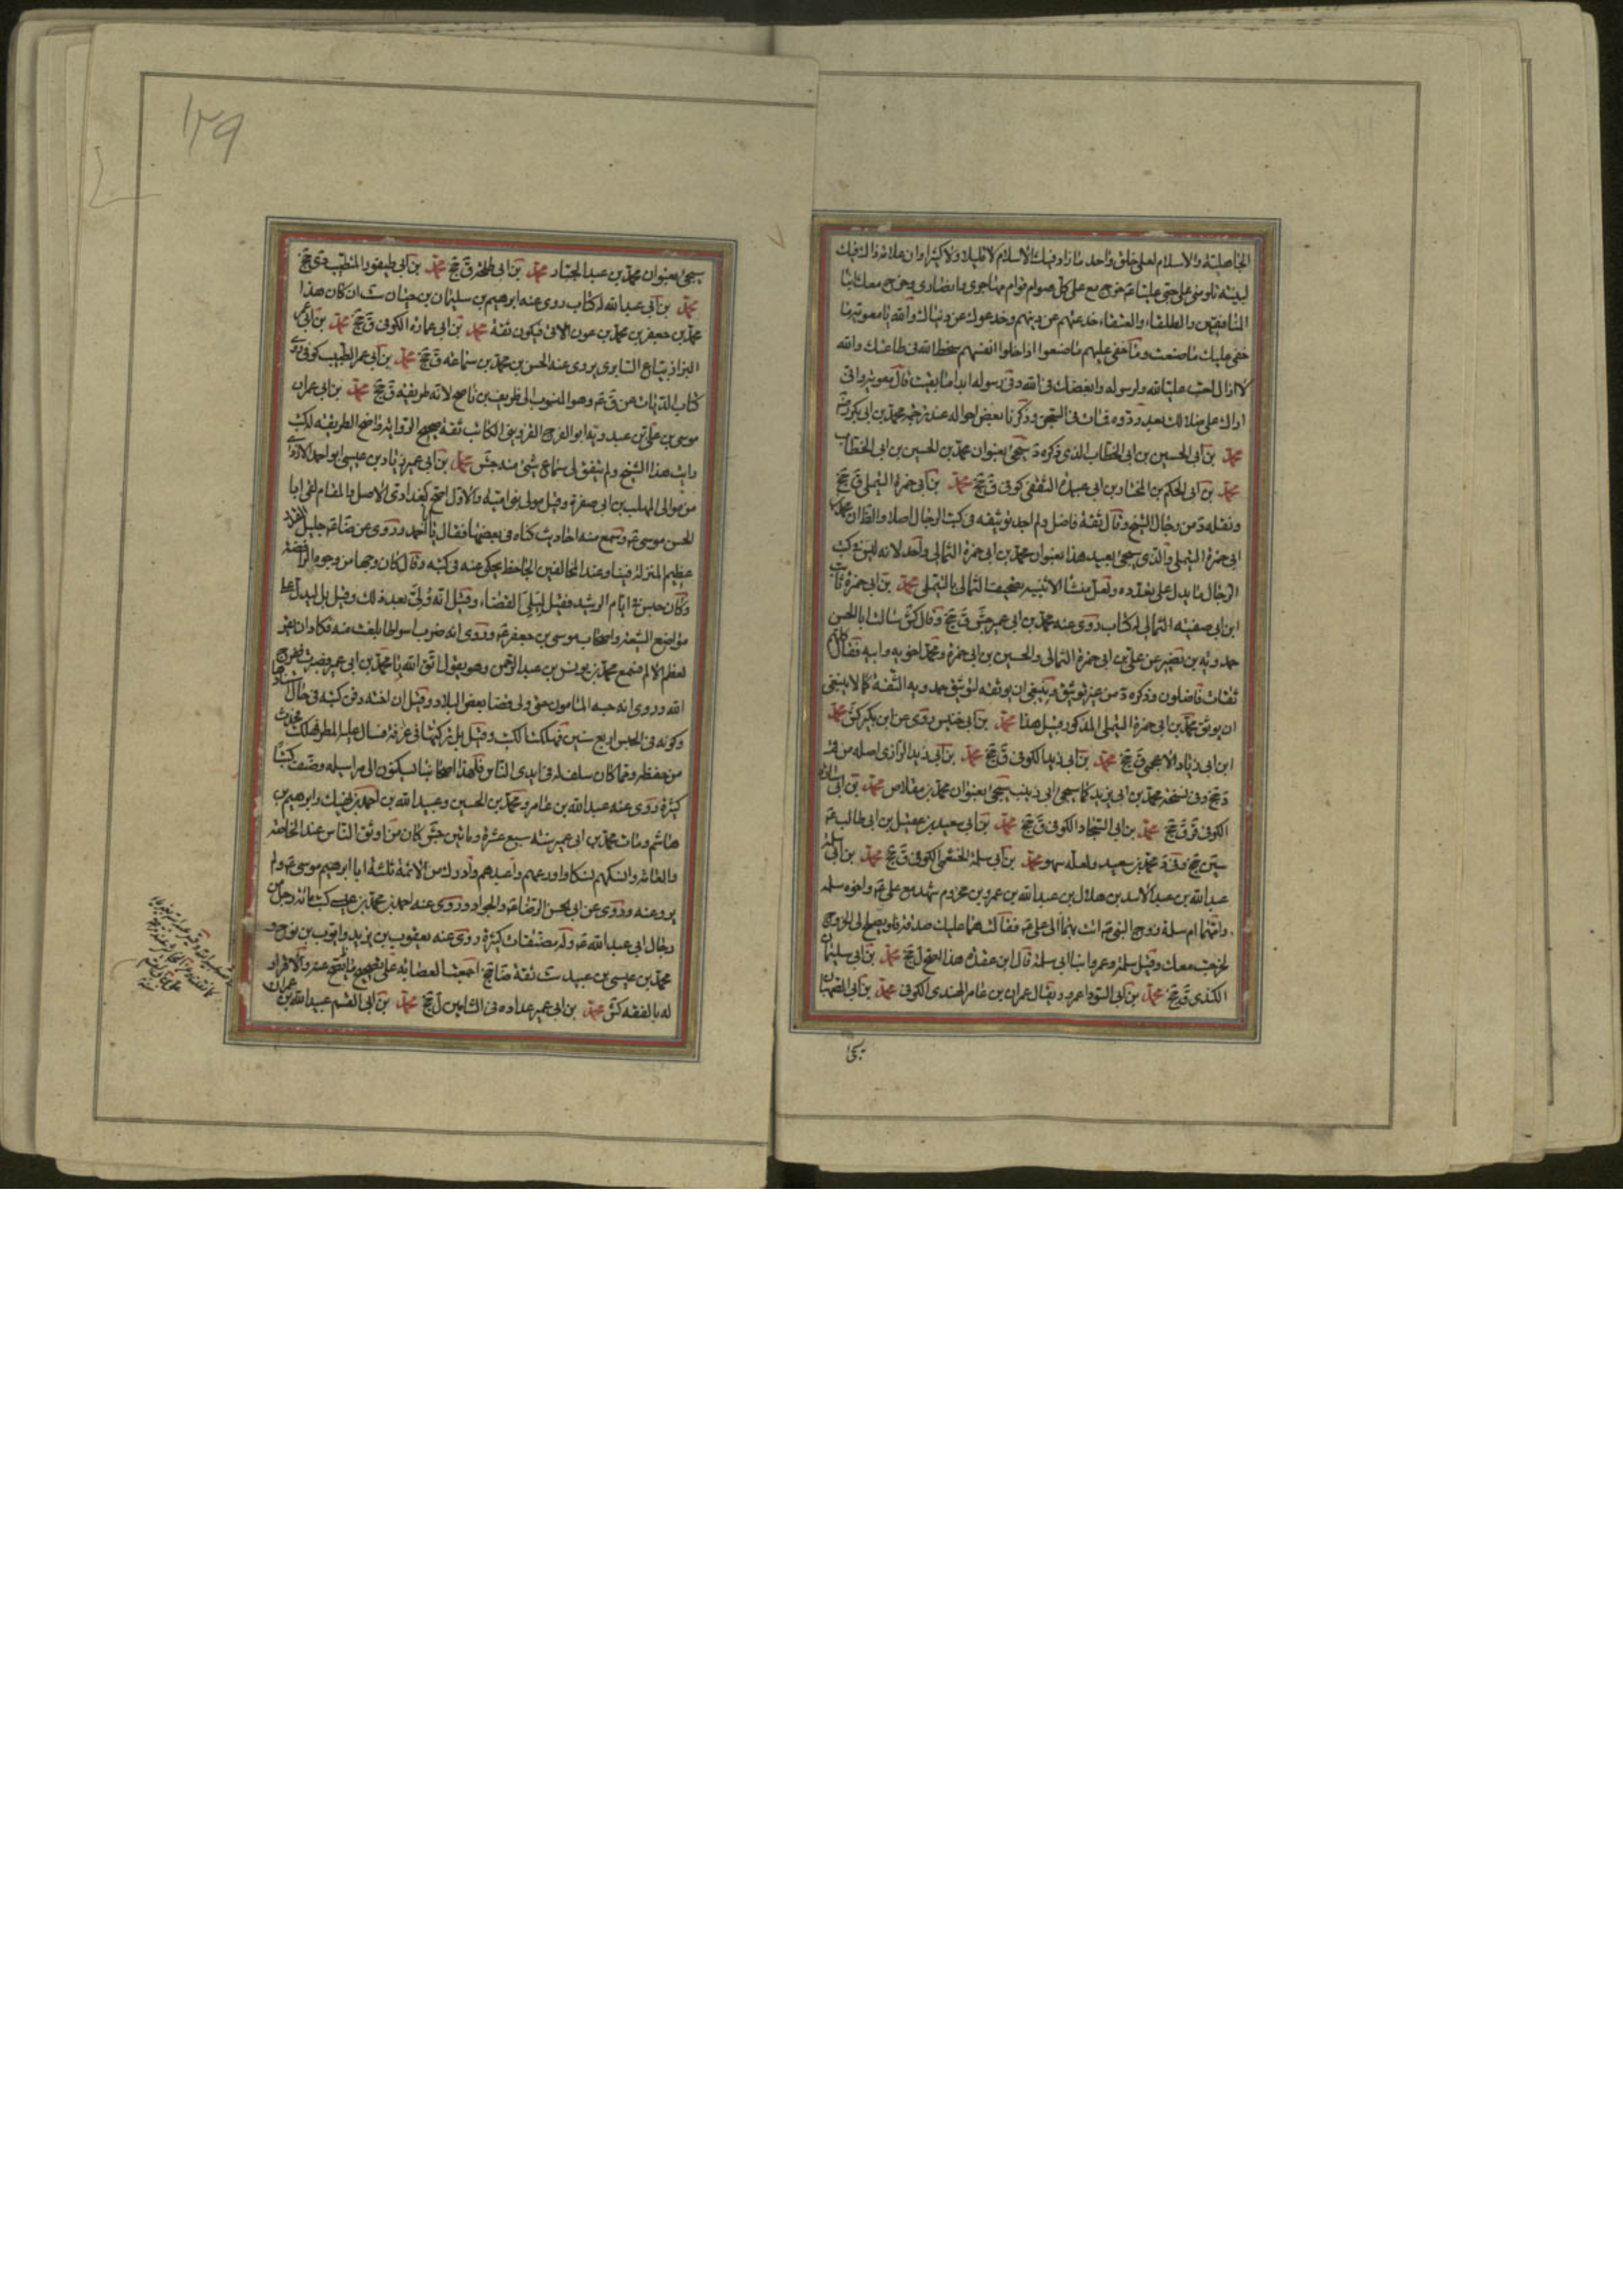 الجاهلية والاسلام لعلى خلق واحد ما زاد فيك الاسلام لا قليلا ولا كثيرا وان علامة ذلك فيك
لبينة تلومنى على حبى عليا ع خرج مع على كل صوام قوام مهاجرى وانصارى وخرج معك ابنا
المنافقين والطلقاء والعتقاء خدعتهم عن دينهم وخدعوك عن دنياك والله يا معوية ما
خفى عليك ما صنعت وما خفى عليهم ما صنعوا اذ احلوا انفسهم سخط الله فى طاعتك والله
لا ازال احب عليا لله ولرسوله وابغضك فى الله وفى رسوله ابدا ما بقيت قال معوية وانى
اراك على ضلالك بعد ردوه فمات فى السجن وذكرنا بعض احواله عند ترجمة محمد بن ابى بكر
محمد بن ابى الحسين بن ابى الخطاب الذى ذكره د سيجئ بعنوان محمد بن الحسين بن ابى الخطاب
محمد بن ابى الحكم بن المختار بن ابى عبيدة الثقفى كوفى ق جخ محمد بن ابى حمزة التيملى ق جخ
ونقله د من رجال الشيخ وقال ثقة فاضل ولم اجد توثيقه فى كتب الرجال اصلا والظان محمد بن
ابى حمزة التيملى والذى سيجئ بعيد هذا بعنوان محمد بن ابى حمزة الثمالى واحد لانه ليس فى كتب
الرجال ما يدل على تعدده ولعل منشأ الاشتباه تصحيف الثمالى بالتيملى محمد بن ابى حمزة ثابت
ابن ابى صفية الثمالى له كتاب روى عنه محمد بن ابى عمير جش ق جخ وقال كش سألت ابا الحسن
حمدويه بن نصير عن على بن ابى حمزة الثمالى والحسين بن ابى حمزة ومحمد اخويه وابيه فقال كلهم
ثقات فاضلون وذكره د من غير توثيق وينبغى ان يوثقه لتوثيق حمدويه الثقة كما لا ينبغى
ان يوثق محمد بن ابى حمزة التيملى المذكور قبيل هذا محمد بن ابى خنيس روى عن ابن بكير كش محمد
ابن ابى زياد الاعجمى ق جخ محمد بن ابى زيد الكوفى ق جخ محمد بن ابى زيد الرازى اصله من قم
د جخ وفى نسخة محمد بن ابى يزيد كما سيجئ ابى زينب سيجئ بعنوان محمد بن مقلاص محمد بن ابى سارة
الكوفى قر ق جخ محمد بن ابى السجاد الكوفى ق جخ محمد بن ابى سعيد بن عقيل بن ابى طالب ع
سين جخ وفى د محمد بن سعيد ولعله سهو محمد بن ابى سلمة الخثعمى الكوفى ق جخ محمد بن ابى سلمة
عبد الله بن عبد الاسد بن هلال بن عبد الله بن عمر بن مخزوم شهد مع على ع واخوه سلمة
وامهما ام سلمة زوج النبى ص اتت بهما الى على ع فقالت هما عليك صدقة فلو يصلح لى الخروج
لخرجت معك وقيل سلمة وعمر وابنا ابى سلمة قال ابن عقدة هذا اصح ل جخ محمد بن ابى سليمان
الكندى ق جخ محمد بن ابى السوداء عمرو ويقال عمران بن عامر الهندى الكوفى محمد بن ابى الصهبان
يجئ
١٣٩
سيجئ بعنوان محمد بن عبد الجبار محمد بن ابى طلحة ق جخ محمد بن ابى طيفور المتطبب دى جخ
محمد بن ابى عبد الله له كتاب روى عنه ابرهيم بن سليمان بن حيان ست ان كان هذا
محمد بن جعفر بن محمد بن عون الاتى فيكون ثقة محمد بن ابى عمارة الكوفى ق جخ محمد بن ابى عمر
البزاز بياع السابرى يروى عنه الحسن بن محمد بن سماعة ق جخ محمد بن ابى عمر الطبيب كوفى روى
كتاب الديات عن ق ع وهو المنسوب الى ظريف بن ناصح لانه طريقه ق جخ محمد بن ابى عمران
موسى بن على بن عبدويه ابو الفرج القزوينى الكاتب ثقة صحيح الرواية واضح الطريقة له كتب
رايت هذا الشيخ ولم يتفق لى سماع شئ منه جش محمد بن ابى عمير زياد بن عيسى ابو احمد الازدى
من موالى المهلب بن ابى صفرة وقيل مولى بنى امية والاول اصح بغدادى الاصل والمقام لقى ابا
الحسن موسى ع وسمع منه احاديث كناه فى بعضها فقال يا ابا احمد وروى عن ضا ع جليل القدر
عظيم المنزلة فينا وعند المخالفين الجاحظ يحكى عنه فى كتبه وقال كان وجها من وجوه الرافضة
وكان حبس فى ايام الرشيد فقيل ليلى القضاء وقيل انه ولى بعد ذلك وقيل بل ليدل على
مواضع الشيعة واصحاب موسى بن جعفر ع وروى انه ضرب اسواطا بلغت منه فكاد ان يقر
لعظم الالم فسمع محمد بن يونس بن عبد الرحمن وهو يقول اتق الله يا محمد بن ابى عمير فصبر ففرج
الله وروى انه حبسه المامون حتى ولى قضا بعض البلاد وقيل ان اخته دفن كتبه فى حال
وكونه فى الحبس اربع سنين فهلكت الكتب وقيل بل تركتها فى غرفة فسال عليها المطر فهلكت فحدث
من حفظه ومما كان سلف له فى ايدى الناس فلهذا اصحابنا يسكنون الى مراسيله وصنف كتبا
كثيرة روى عنه عبد الله بن عامر ومحمد بن الحسين وعبيد الله بن احمد بن نهيك وابرهيم بن
هاشم ومات محمد بن ابى عمير سنة سبع عشرة ومائتين جش كان من اوثق الناس عند الخاصة
والعامة وانسكهم نسكا واورعهم واعبدهم وادرك من الائمة ثلثة ابا ابرهيم موسى ع ولم
يرو عنه وروى عن ابى الحسن الرضا ع والجواد وروى عنه احمد بن محمد بن عيسى كتب مائة رجل من
رجال ابى عبد الله ع وله مصنفات كثيرة روى عنه يعقوب بن يزيد وايوب بن نوح و
محمد بن عيسى بن عبيد ست ثقة ضا جخ اجمعت العصابة على تصحيح ما يصح عنه والاقرار
له بالفقه كش محمد بن ابى عمير عداده فى الشاميين ل جخ محمد بن ابى القسم عبيد الله بن عمران